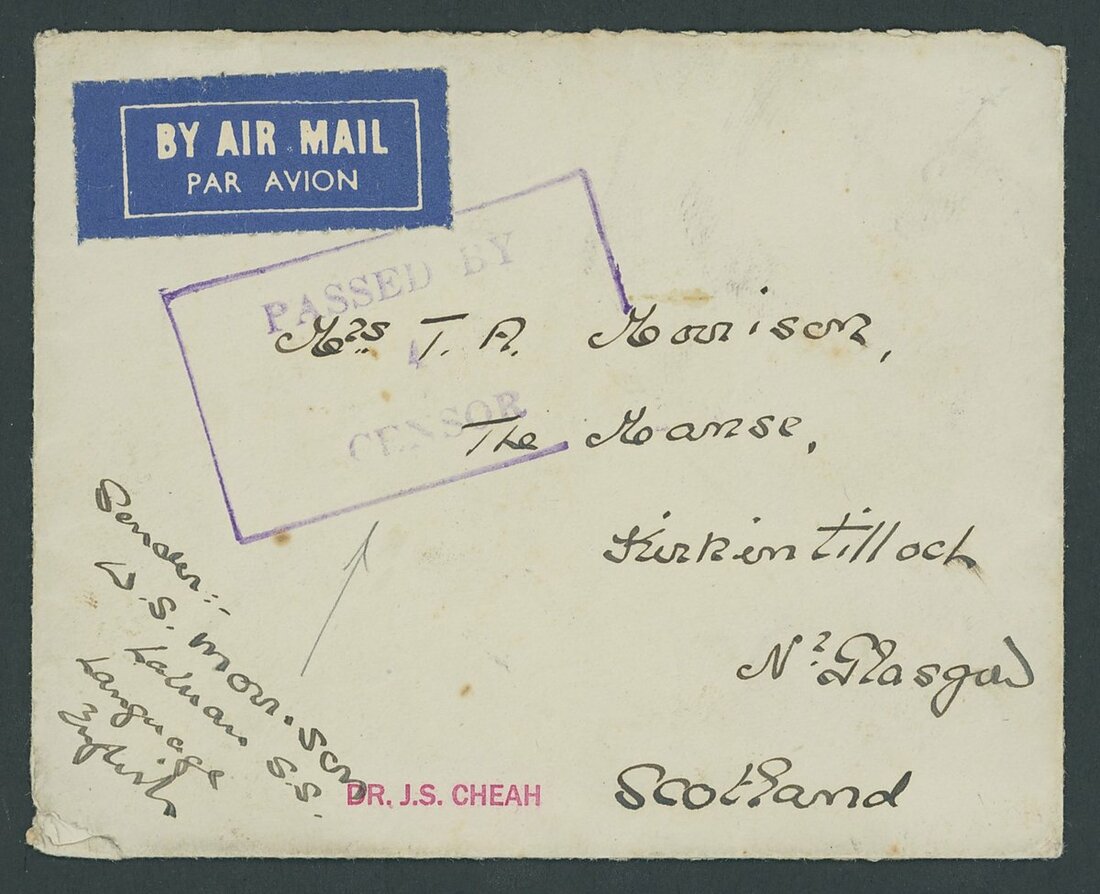 BY AIR MAIL
PAR AVION
PASSED BY
CENSOR
Mrs T. A. Morrison,
The Manse,
Kirkintilloch
Nr Glasgow
Scotland
Sender:-
W.S. Morrison
Labuan S.S.
Language
English
DR. J.S. CHEAH